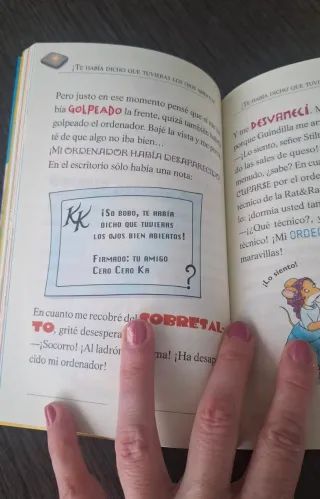 ¡TE HABÍA DICHO QUE TUVIERAS LOS OJOS
Pero justo en ese momento pensé que si me
bía GOLPEADO la frente, quizá también
golpeado el ordenador. Bajé la vista y me
té de que algo no iba bien...
¡MI ORDENADOR HABÍA DESAPARECIDO
En el escritorio sólo había una nota:
KK
¡SO BOBO, TE HABÍA
DICHO QUE TUVIERAS
LOS OJOS BIEN ABIERTOS!
FIRMADO: TU AMIGO
CERO CERO KA
?
En cuanto me recobré del SOBRESAL-
TO, grité desespera
—¡Socorro! ¡Al ladrón ma! ¡Ha desap
cido mi ordenador!
¡TE HABÍA DICHO QUE TUVIERAS
Y me DESVANECÍ. M
porque Guindilla me
—¡Lo siento, señor Stilt
do las sales de queso!
menudo, ¿sabe? En cua
CUPARSE por el orde
técnico de la Rat&Ra
tes, ¡dormía usted tan
—¡¿Qué técnico?, ¡
técnico! ¡Mi ORDE
maravillas!
¡Lo siento!